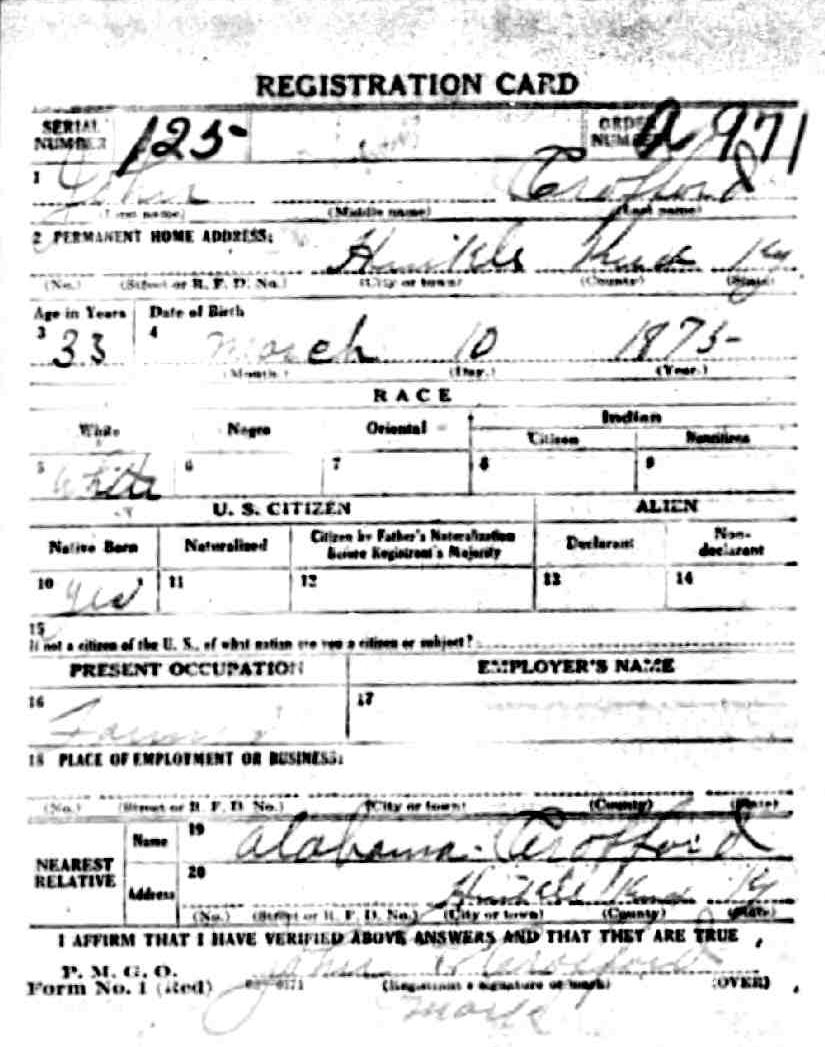 REGISTRATION CARD
SERIAL NUMBER 125 ORDER NUMBER A 971
1 John Crofford
(First name) (Middle name) (Last name)
2 PERMANENT HOME ADDRESS:
Hinkle Knox Ky
(No.) (Street or R. F. D. No.) (City or town) (County) (State)
Age in Years Date of Birth
3 33 4 March 10 1875
(Month.) (Day.) (Year.)
RACE
White Negro Oriental Indian
Citizen Noncitizen
5 White 6 7 8 9
U. S. CITIZEN ALIEN
Native Born Naturalized Citizen by Father's Naturalization Before Registrant's Majority Declarant Non-declarant
10 Yes 11 12 13 14
15
If not a citizen of the U. S., of what nation are you a citizen or subject?
PRESENT OCCUPATION EMPLOYER'S NAME
16 Farmer 17
18 PLACE OF EMPLOYMENT OR BUSINESS:
(No.) (Street or R. F. D. No.) (City or town) (County) (State)
NEAREST RELATIVE Name 19 Alabama Crofford
Address 20 Hinkle Knox Ky
(No.) (Street or R. F. D. No.) (City or town) (County) (State)
I AFFIRM THAT I HAVE VERIFIED ABOVE ANSWERS AND THAT THEY ARE TRUE
P. M. G. O.
Form No. 1 (Red) John Crofford
(Registrant's signature or mark) (OVER)
mark